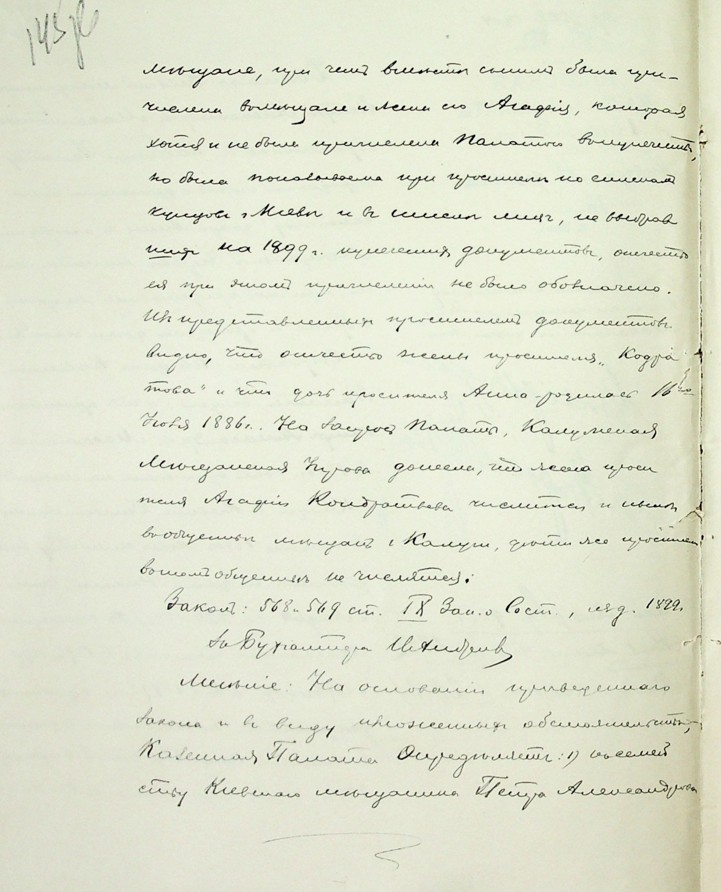 145
мѣщане, при чемъ вмѣстѣ съ нимъ была при-
числена въ мѣщане и жена его Агафія, которая
хотя и не была причислена Палатою въ купечество,
но была показываема при просителѣ по спискамъ
купцовъ г. Кіева и въ числѣ лицъ, не выбрав
шихъ на 1899 г. купеческихъ документовъ, отчество
ея при этомъ причисленіи не было обозначено.
Изъ представленныхъ просителемъ документовъ
видно, что отчество жены просителя „Кодра
това" и что дочь просителя Анна родилась 16го
Іюня 1886 г. На запросъ Палаты, Калужская
Мѣщанская Управа донесла, что жена проси
теля Агафія Кондратьева числится и нынѣ
въ обществѣ мѣщанъ г. Калуги, дѣти же просителя
въ томъ обществѣ не числятся.
Законъ: 568 и 569 ст. IX Зак. о Сост., изд. 1899 г.
За Бухгалтера
Мнѣніе: На основаніи приведеннаго
закона и въ виду изложенныхъ обстоятельствъ,
Казенная Палата Опредѣляетъ: 1) къ семей
ству Кіевскаго мѣщанина Петра Александрова